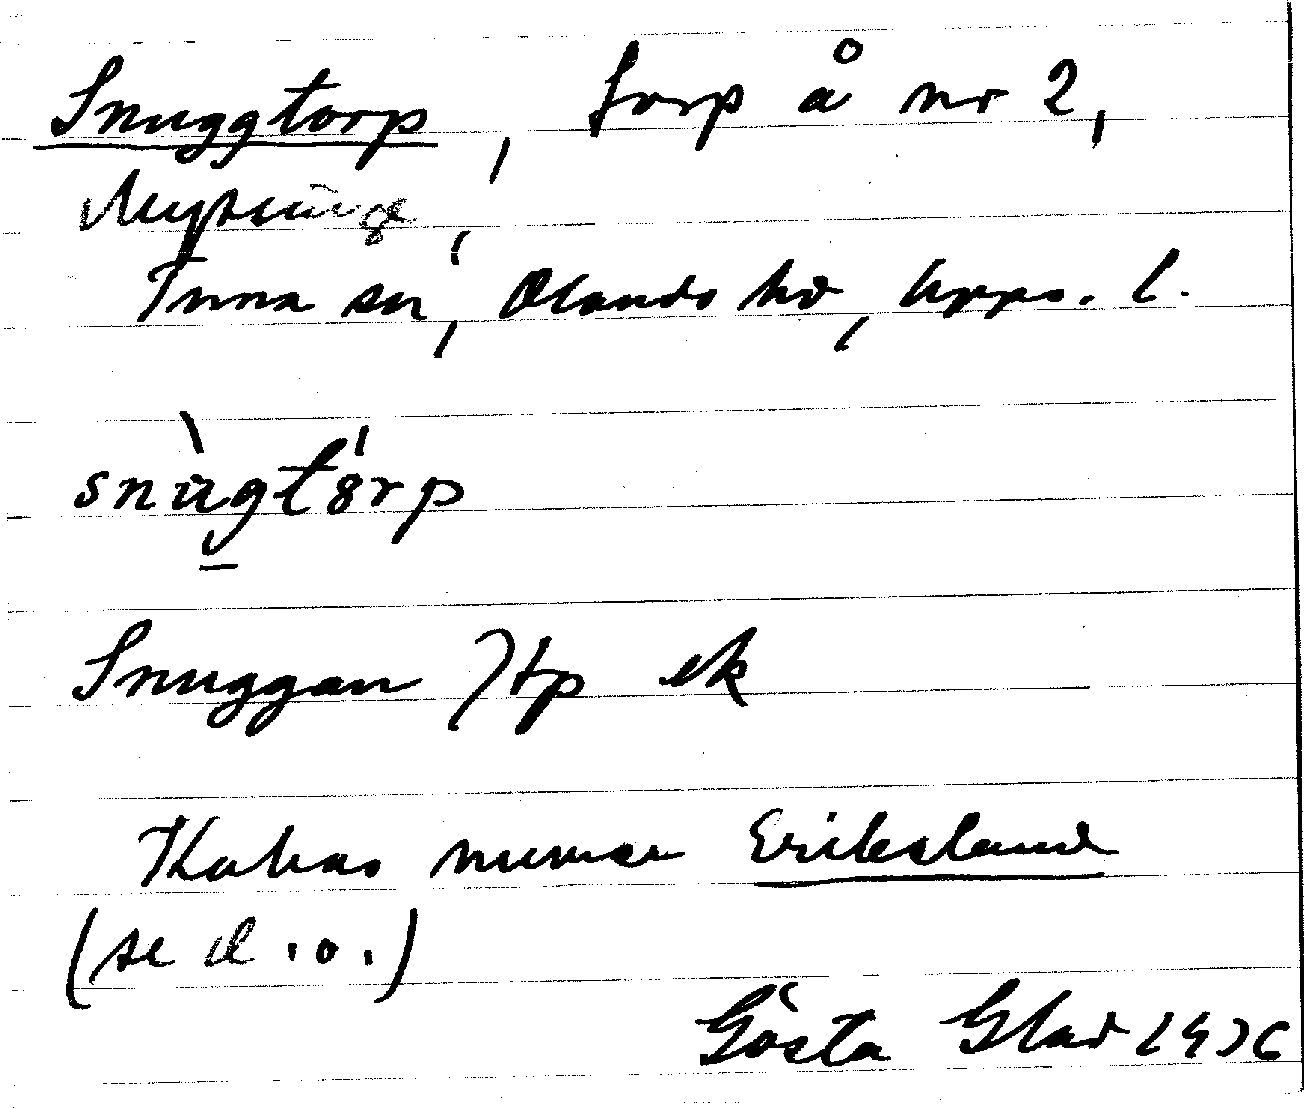 Snuggtorp, torp å nr 2,
Mysinge,
Tuna sn, Olands hd, Upps. l.
snùgtórp
Snuggan) tp ek
Kallas numera Erikslund
(se d.o.)
Gösta Glad 1936